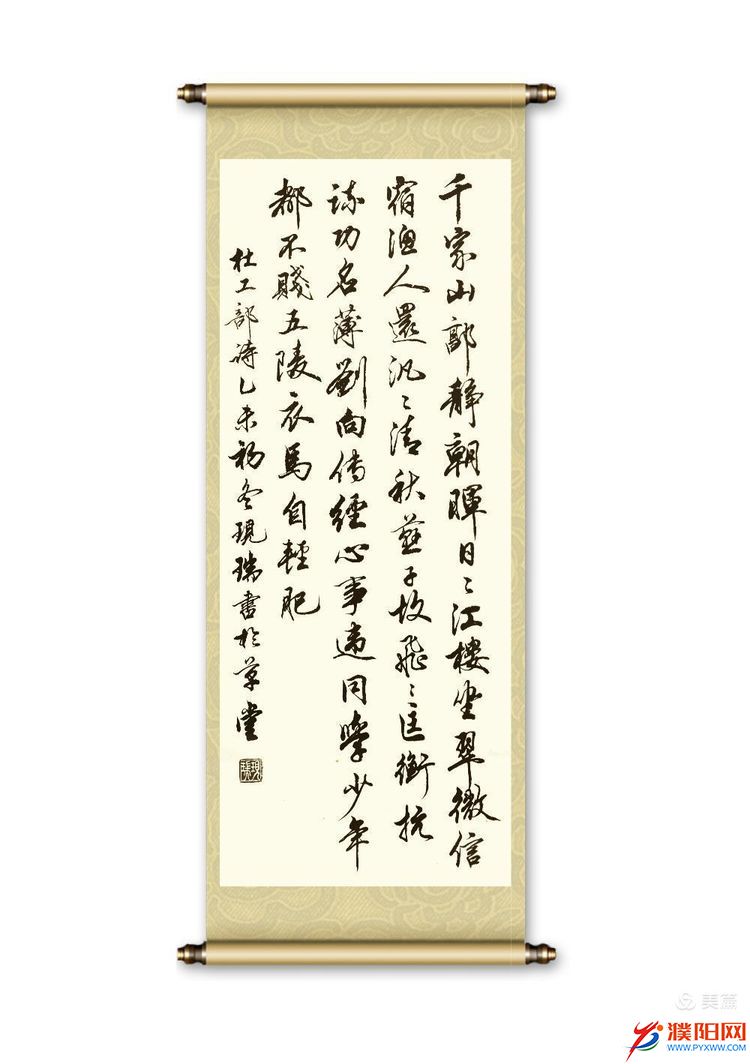 千家山郭静朝暉日〻江樓坐翠微信
宿漁人還汎〻清秋燕子故飛〻匡衡抗
疏功名薄劉向傳經心事違同學少年
都不賤五陵衣馬自輕肥
杜工部詩乙未初冬現瑞書於草堂
美篇
濮阳网
WWW.PYXWW.COM